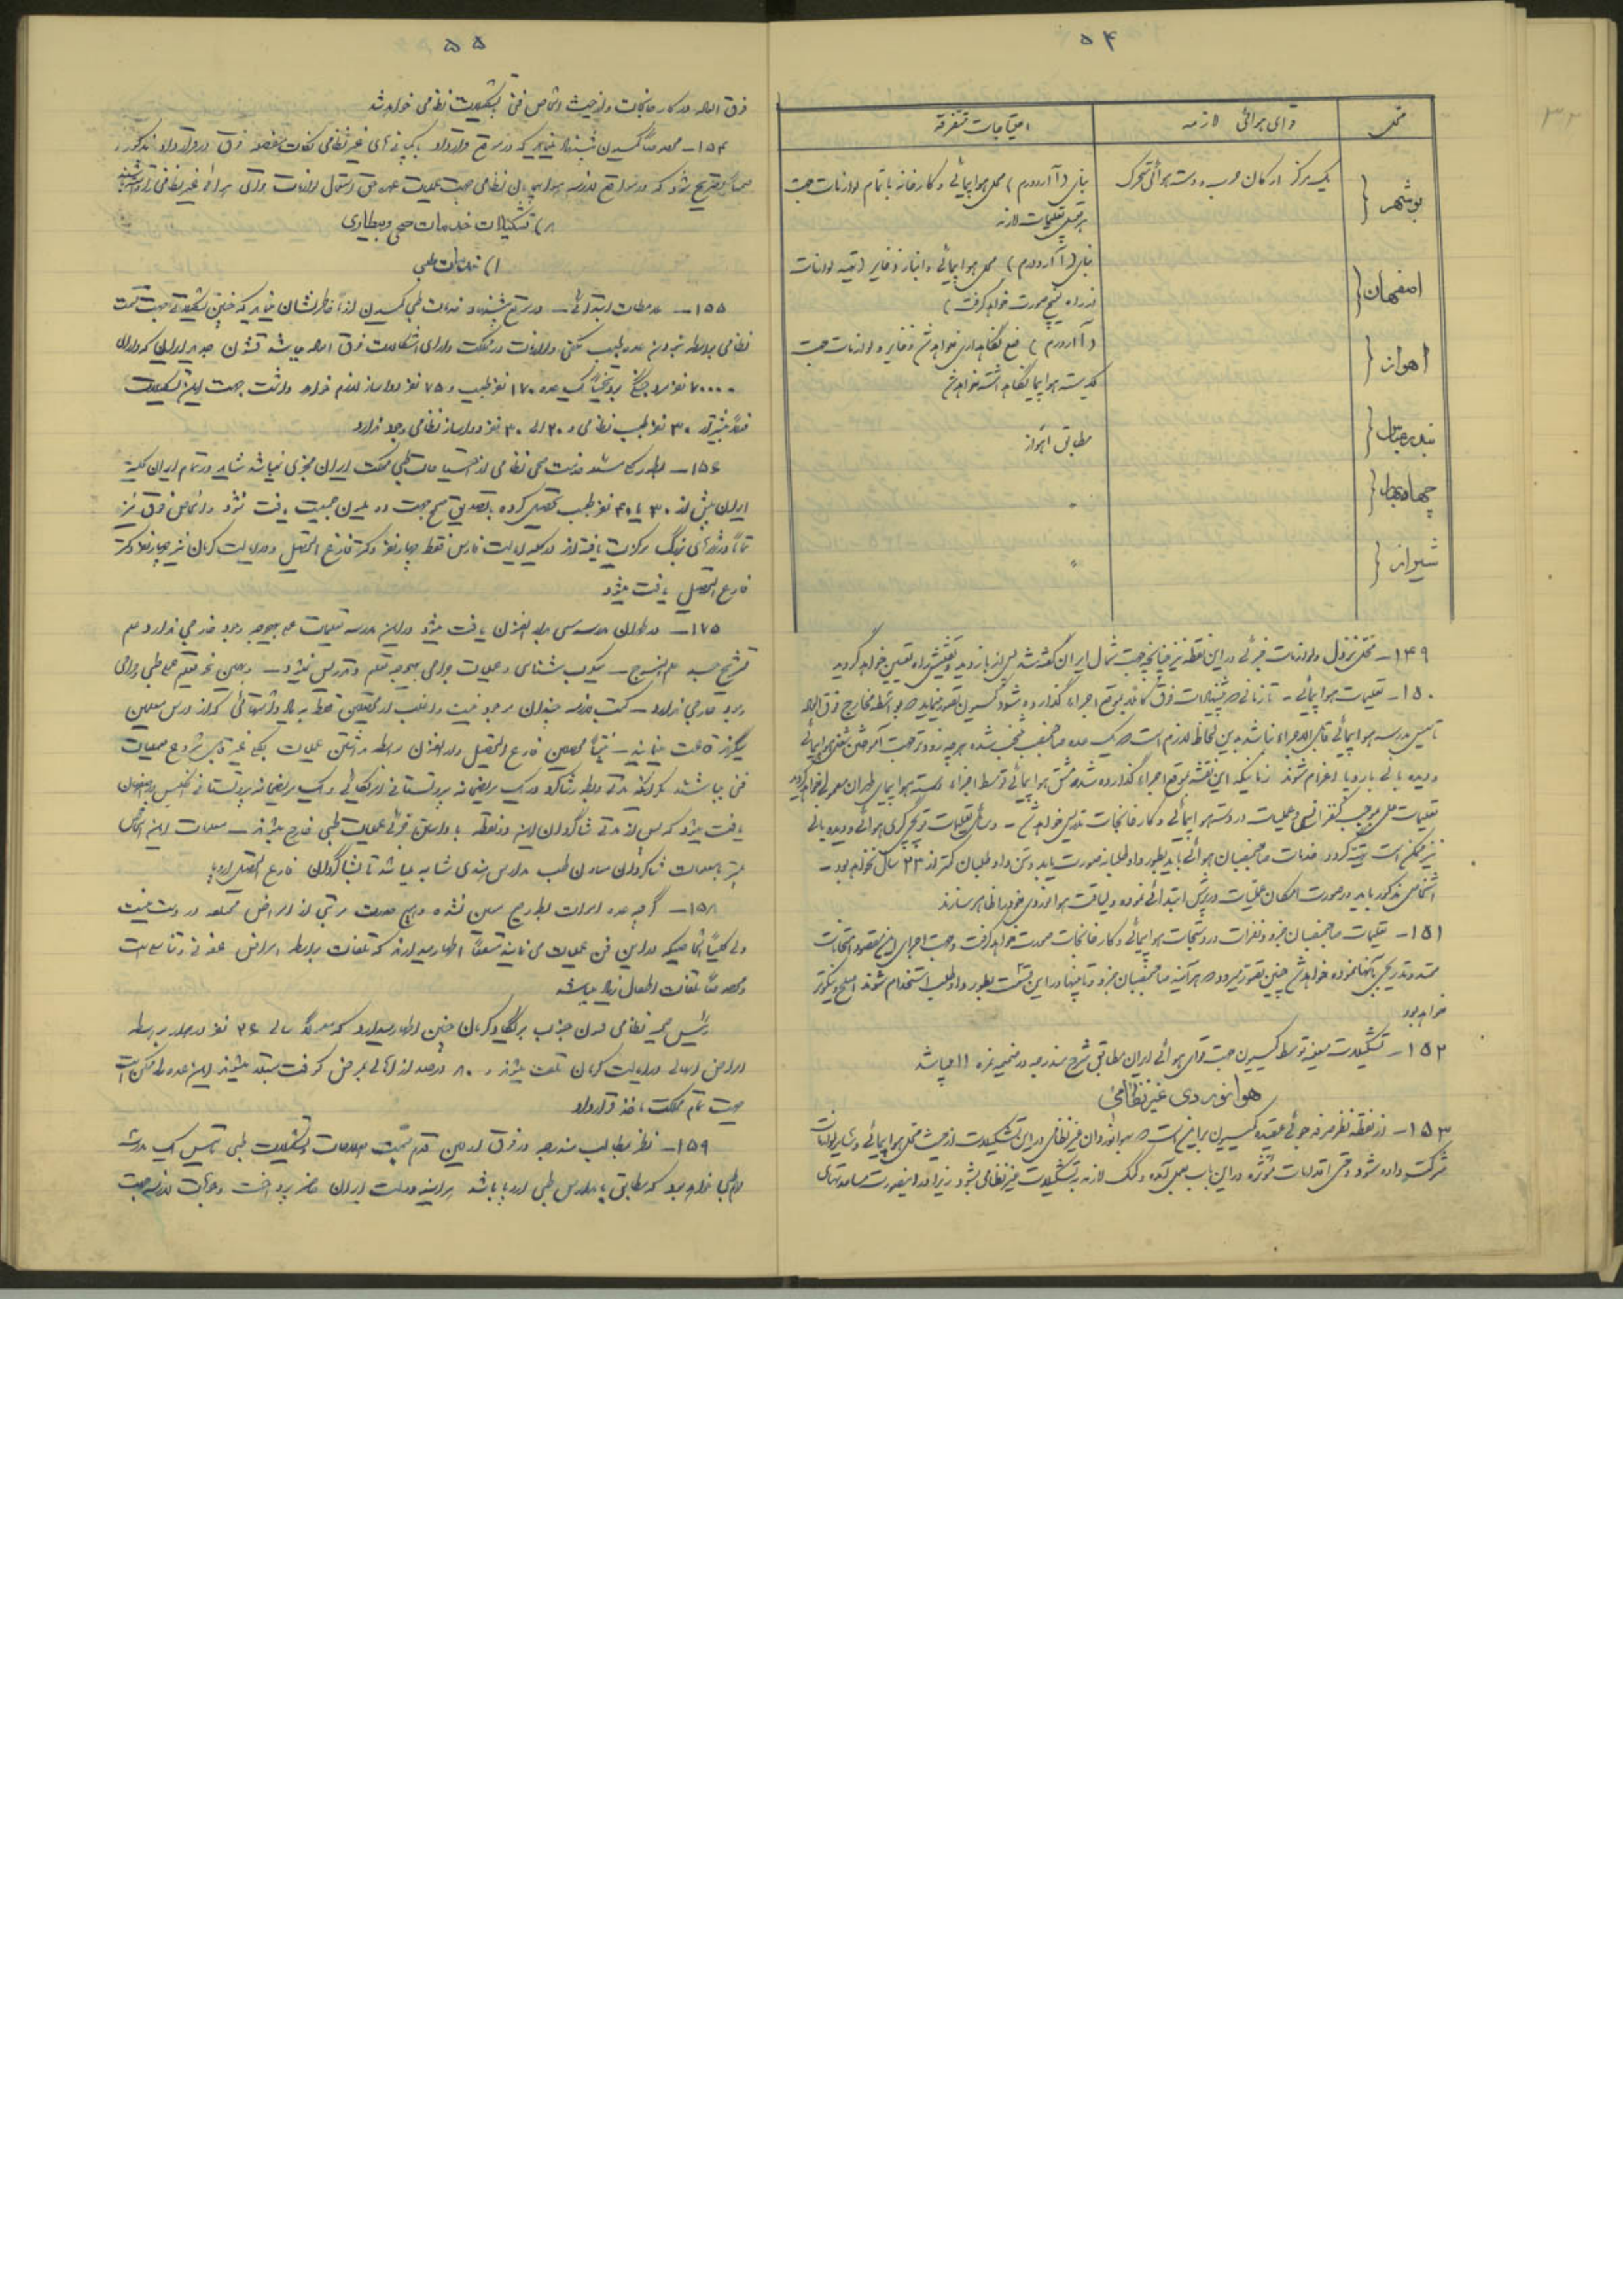 ۵۴
محل
قوای هوائی لازمه
احتیاجات متفرقه
بوشهر {
یک مرکز ارکان حرب و دسته هوائی متحرک
بنای (آآردورم) محل هواپیمائی و کارخانه با تمام لوازمات جهت
تعلیمات لازمه
اصفهان {
بنای (آآردورم) محل هواپیمائی و انبار ذخایر (بقیه لوازمات
از راه خلیج صورت خواهد گرفت)
اهواز {
(آآردورم) نگاهداری خواهد شد ذخایر و لوازمات جهت
یکدسته هواپیما نگاه داشته خواهد شد
بندرعباس {
مطابق اهواز
چهاربهار {
"
شیراز {
"
۱۴۹ – محل نزول و لوازمات جزئی در این نقطه نیز چنانچه جهت شمال ایران گفته شد پس از بازدید و تفتیش راه تعیین خواهد گردید
۱۵۰ – تعلیمات هواپیمائی – تا زمانی که پیشنهادات فوق کاملا بموقع اجراء گذارده شود کمیسیون تصور مینماید که بواسطه مخارج فوق العاده
تأسیس مدرسه هواپیمائی قابل اجراء نباشد بدین لحاظ لازم است که یک عده صاحبمنصب منتخب شده هر چه زودتر جهت آموختن شغل هواپیمائی
و دیده بانی باروپا اعزام شوند زمانیکه این نقشه بموقع اجراء گذارده شد مشق هواپیمائی توسط اجزاء دسته هواپیمای طهران معمول خواهد گردید
تعلیمات عملی بموجب کنفرانس و عملیات در دسته هواپیمائی و کارخانجات تدریس خواهد شد – وسائل تعلیمات توپچیگری هوائی و دیده بانی
نیز ممکن است تهیه گردد خدمات صاحبمنصبان هوائی باید بطور داوطلبانه صورت یابد و سن داوطلبان کمتر از ۲۳ سال نخواهد بود –
اشخاص مذکور باید در صورت امکان عملیات ورزش ابتدائی نموده و لیاقت هوانوردی خود را ظاهر سازند
۱۵۱ – تعلیمات صاحبمنصبان جزو و نفرات در دستجات هواپیمائی و کارخانجات صورت خواهد گرفت و جهت اجرای این مقصود امتحانات
ممتد و تدریجی بآنها نموده خواهد شد چنین تصور میرود که هر آینه صاحبمنصبان جزو و تابینها در این قسمت بطور داوطلب استخدام شوند اصلح و نیکوتر
خواهد بود
۱۵۲ – تشکیلات معینه توسط کمیسیون جهت قوای هوائی ایران مطابق شرح مندرجه در ضمیمه نمره ۱۱ میباشد
هوانوردی غیرنظامی
۱۵۳ – از نقطه نظر صرفه جوئی عقیده کمیسیون بر این است که هوانوردان غیر نظامی در این تشکیلات از حیث محل هواپیمائی و سایر لوازمات
شرکت داده شود وقتی اقدامات مؤثره در این باب بعمل آمده و کمک لازمه به تشکیلات غیر نظامی بشود زیرا در اینصورت مساعدتهای
۵۵
فوق العاده در کارخانجات و از حیث اشخاص فنی بتشکیلات نظامی خواهد شد
۱۵۴ – مخصوصاً کمیسیون پیشنهاد مینماید که در موقع قرارداد با کمپانی های غیر نظامی نکات مفصله فوق در قرارداد مذکور و
ضمناً تصریح شود که در مواقع لازمه هواپیمایان نظامی جهت عملیات حق استعمال لوازمات هوائی غیر نظامی را داشته باشند
۸) تشکیلات خدمات صحی و بیطاری
۱) خدمات طبی
۱۵۵ – ملاحظات ابتدائی – در موقع پیشنهاد خدمات طبی کمیسیون لزوماً خاطرنشان مینماید که چنین تشکیلاتی جهت قسمت
نظامی بواسطه نبودن عده طبیب مکفی و لوازمات در مملکت دارای اشکالات فوق العاده میباشد قشون جدید ایران که دارای
۷۰۰۰۰ نفر مرد جنگی بود عده ۱۷۰ نفر طبیب و ۷۵ نفر دواساز لازم خواهد داشت جهت این تشکیلات
فعلاً بیشتر از ۳۰ نفر طبیب نظامی و ۲۰ الی ۳۰ نفر دواساز نظامی وجود ندارد
۱۵۶ – خدمت صحی نظامی از احتیاجات طبی مملکت ایران مجزی نمیباشد شاید در تمام ایران کلیه
ایران بیش از ۳۰ یا ۴۰ نفر طبیب تحصیل کرده با تصدیق صحیح جهت ده ملیون جمعیت یافت نشود و اشخاص فوق نیز
تماماً در شهرهای بزرگ مرکزیت یافته اند در کلیه ایالت فارس فقط چهار نفر دکتر فارغ التحصیل و در ایالت کرمان نیز چهار نفر دکتر
فارغ التحصیل یافت میشود
۱۷۵ – در طهران مدرسه دارالفنون یافت میشود در این مدرسه تعلیمات عملی بهیچوجه وجود خارجی ندارد علم
تشریح جسد علم النسوج – میکرب شناسی و عملیات جراحی بهیچوجه تعلیم و تدریس نمیشود – و همین نحو تعلیم عملی طبی و جراحی
وجود خارجی ندارد – کتب لازمه چندان موجود نیست و اغلب از محصلین فقط به یادداشتهائی که از درس معلمین
میگیرند قناعت مینمایند – نتیجتاً محصلین فارغ التحصیل دارالفنون بواسطه نداشتن عملیات بکلی غیر قابل شروع بعملیات
فنی میباشند مگر اینکه مدتی بطور شاگرد در یک مریضخانه پروتستانی امریکائی و یک مریضخانه پروتستانی انگلیس در اصفهان
یافت میشود که پس از مدتی شاگردان این دو نقطه با داشتن جزئی عملیات طبی خارج میشوند – معلومات این اشخاص
بیشتر بمعلومات شاگردان معاون طب مدارس هندی شباهت میباشد تا بشاگردان فارغ التحصیل اروپا
۱۵۸ – گرچه عده اموات بطور صحیح معین نشده و هیچ صورت مرتبی از امراض مختلفه در دست نیست
ولی کلیتاً اشخاصیکه در این فن عملیات مینمایند متفقاً اظهار میدارند که تلفات بواسطه امراض عفونی و تناسلی است
و مخصوصاً تلفات اطفال زیاد میباشد
رئیس صحیه نظامی قشون جنوب بریگاد کرمان چنین اظهار میدارد که همه ساله ۳۶ نفر در هزار بواسطه
امراض اهالی در ایالت کرمان تلف میشوند و ۸۰ درصد از اهالی بمرض کوفت مبتلا میشوند این عده را ممکن است
جهت تمام مملکت مأخذ قرارداد
۱۵۹ – نظر بمطالب مندرجه در فوق اولین قدم جهت اصلاحات و تشکیلات طبی تأسیس یک مدرسه
طبی خواهد بود که مطابق با مدارس طبی اروپا باشد هر آینه دولت ایران حاضر پرداخت وجوهات لازمه جهت